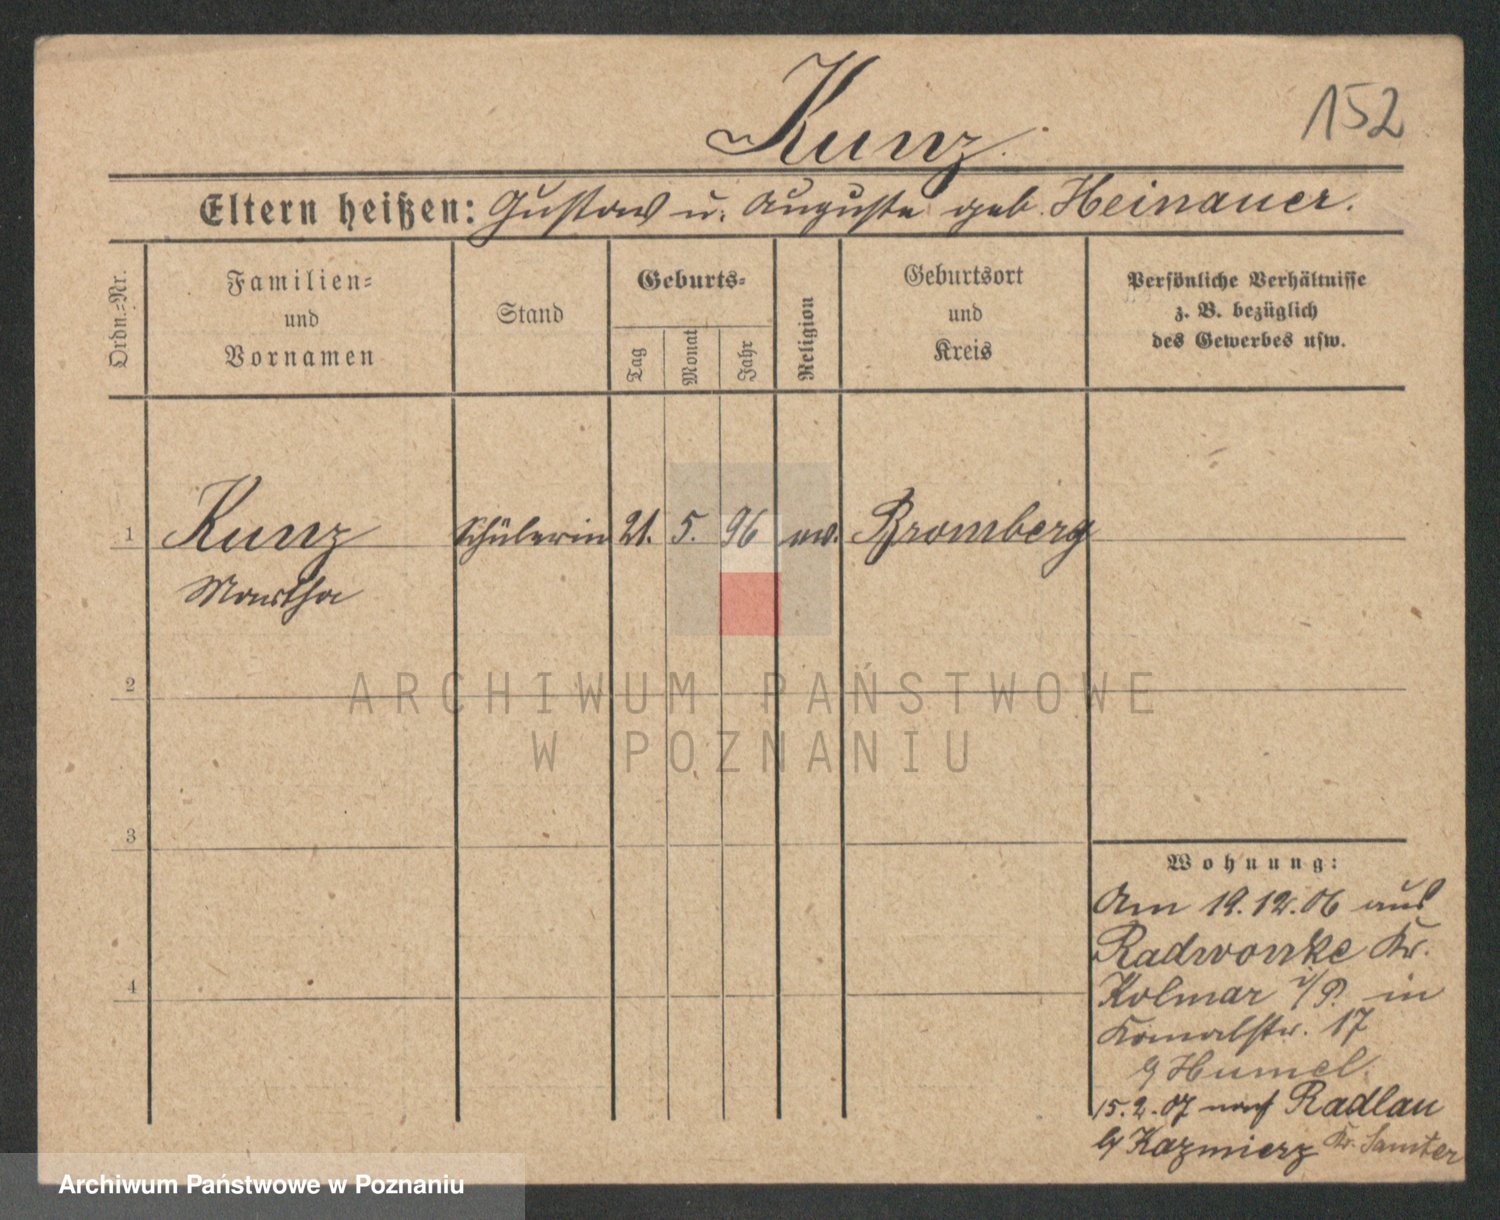 Kunz.
152
Eltern heißen: Gustav u. Auguste geb. Heinauer.
Ordn.-Nr.
Familien-
und
Vornamen
Stand
Geburts-
Tag
Monat
Jahr
Religion
Geburtsort
und
Kreis
Persönliche Verhältnisse
z. B. bezüglich
des Gewerbes usw.
1 Kunz Schülerin 21. 5. 96 ev. Bromberg
Martha
2
ARCHIWUM PAŃSTWOWE
W POZNANIU
3
Wohnung:
Am 19.12.06 aus
Radwonke Kr.
4
Kolmar i/P. in
Kanalstr. 17
b/ Humel.
15.2.07 nach Radlau
b/ Kazmierz Kr. Samter
Archiwum Państwowe w Poznaniu